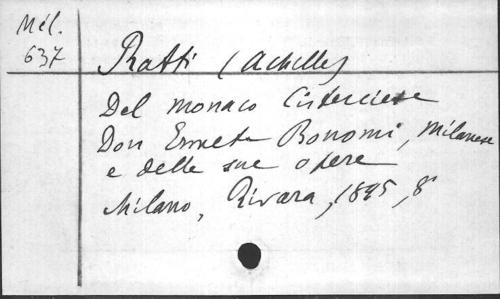 Mél.
637
Ratti (Achille)
Del monaco Cisterciese
Don Ermete Bonomi, milanese
e delle sue opere
Milano, Rivara, 1895, 8°